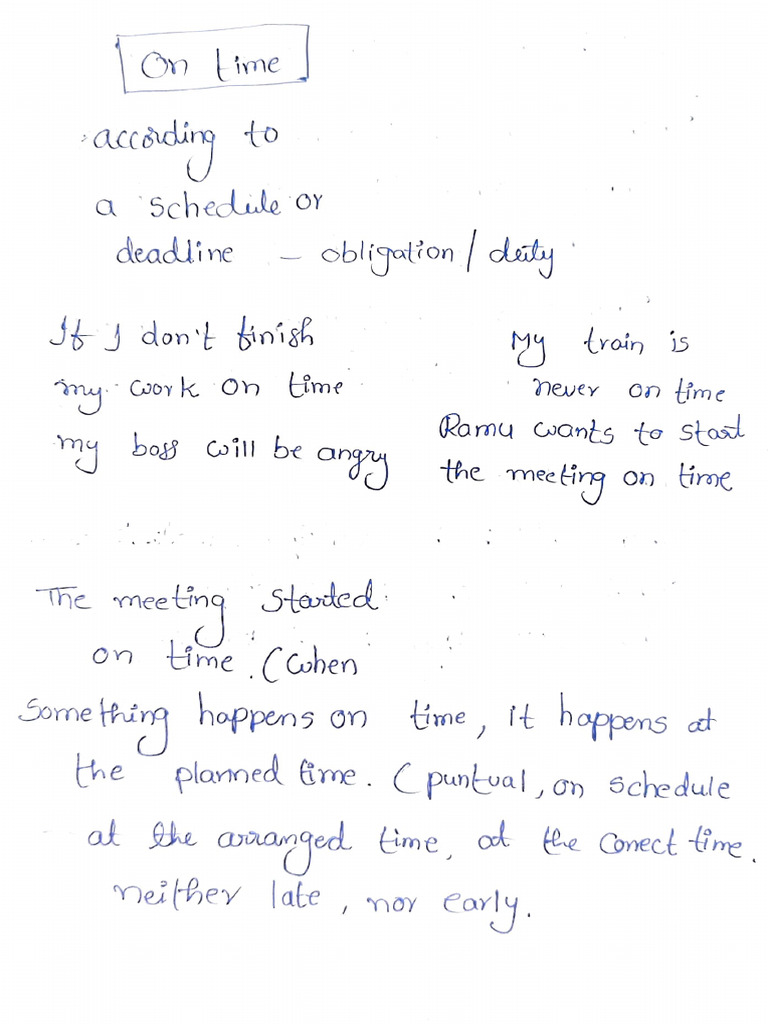 On time
according to
a schedule or
deadline - obligation / duty
If I don't finish
my work on time
my boss will be angry
My train is
never on time
Ramu wants to start
the meeting on time
The meeting started
on time. (When
Something happens on time, it happens at
the planned time. (puntual, on schedule
at the arranged time, at the correct time.
neither late, nor early.